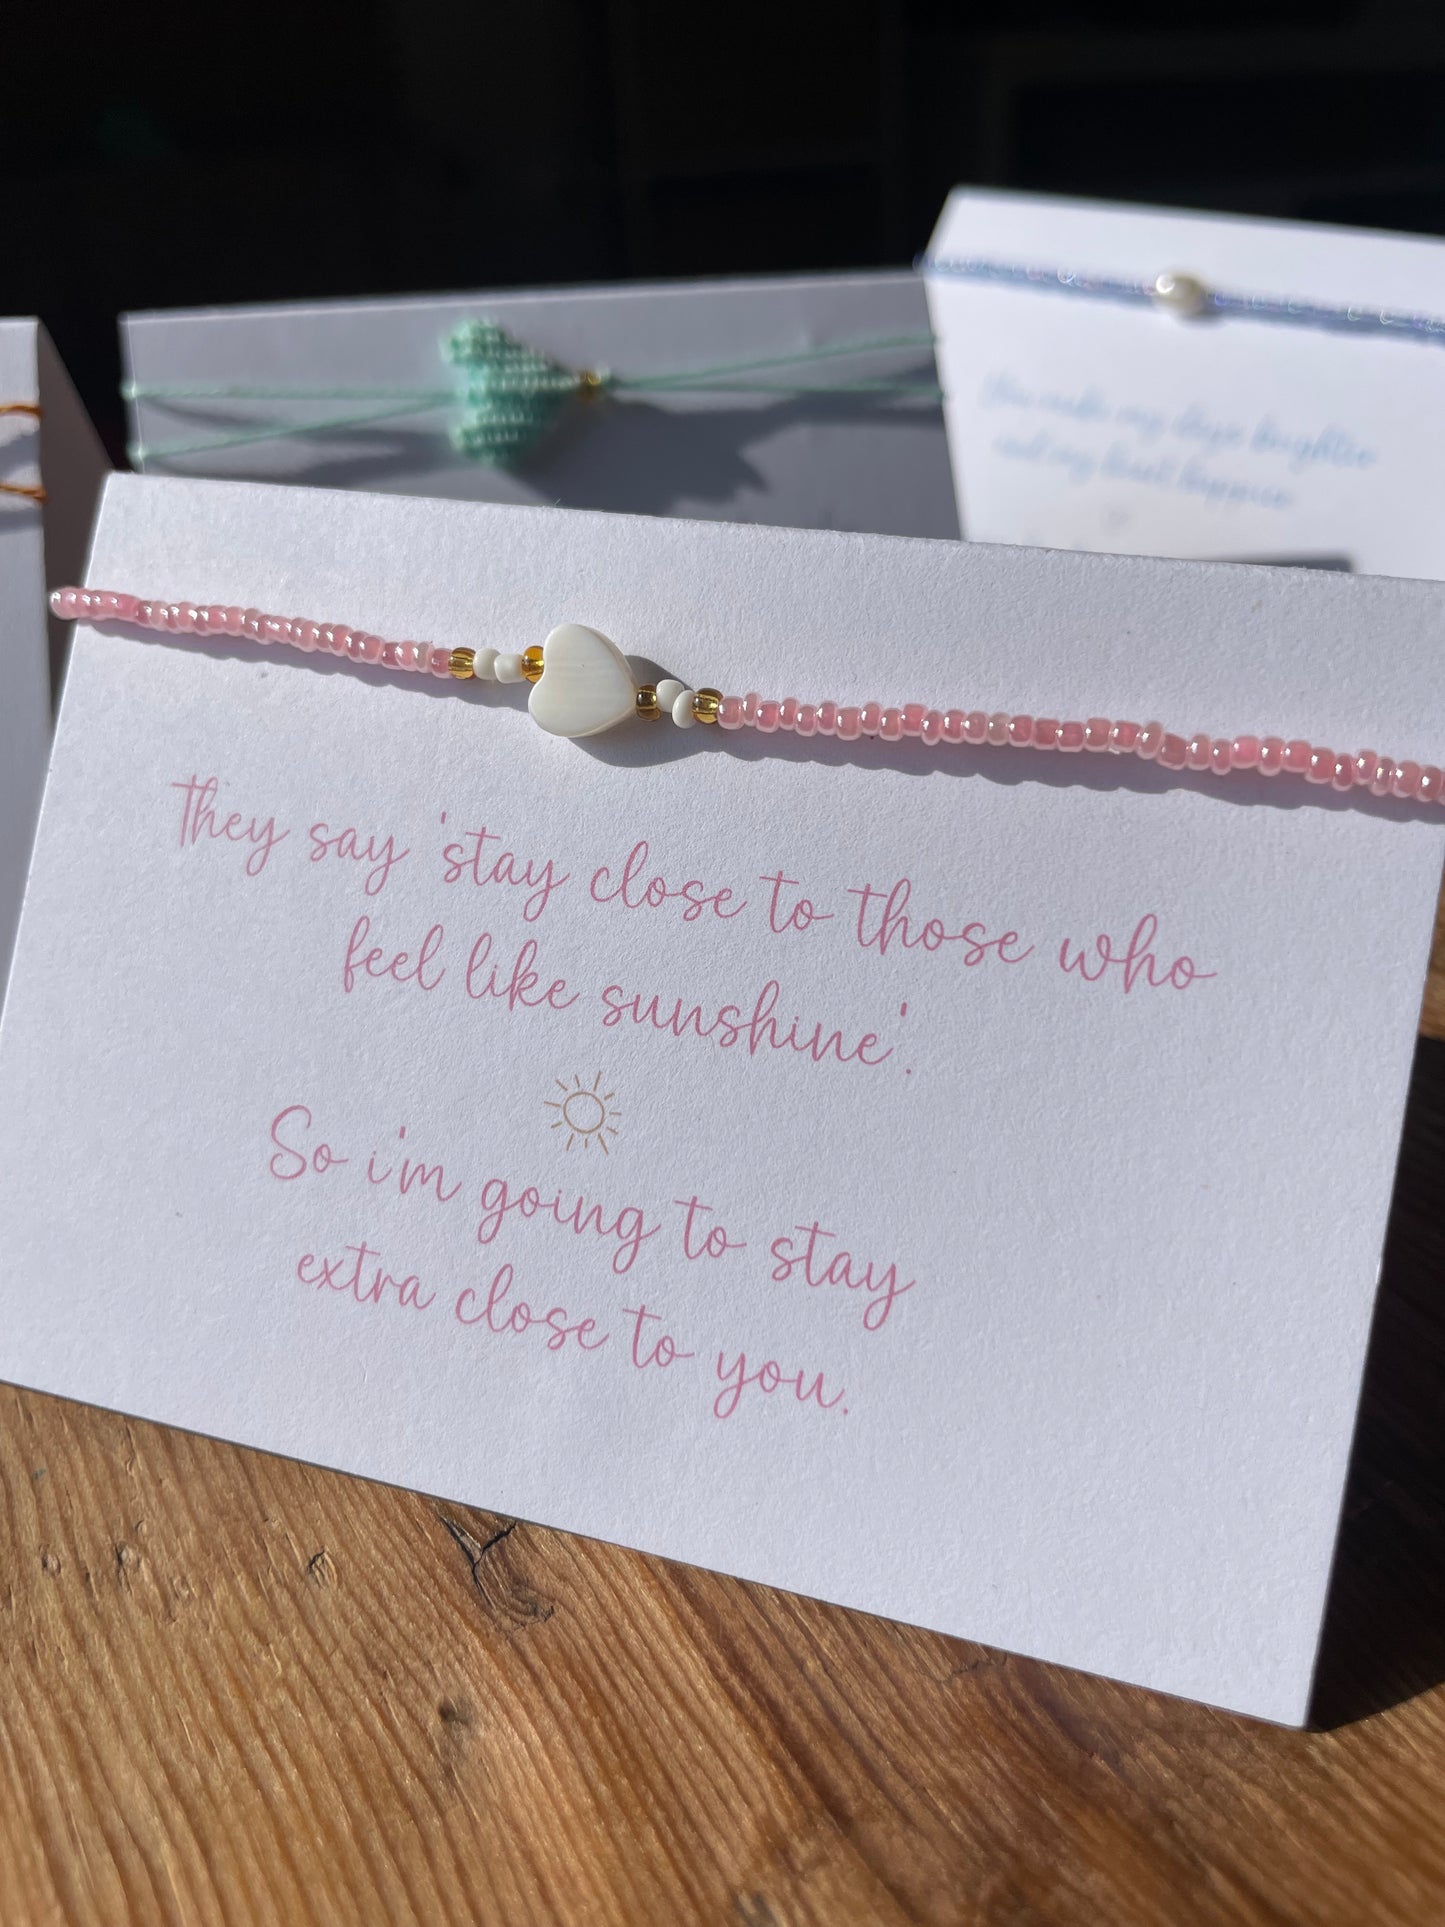 They say 'stay close to those who
feel like sunshine'.
So i'm going to stay
extra close to you.
You make my days brighter
and my heart happier